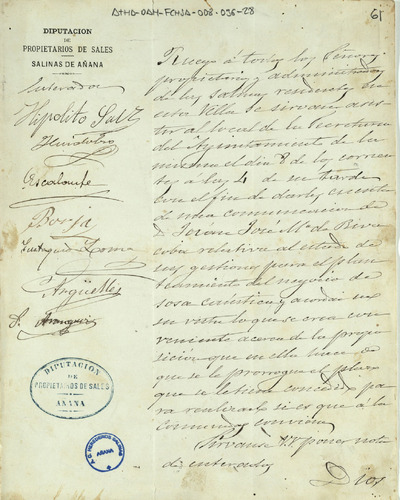 ATHA-DAH-FCHJA-008-036-28
61
DIPUTACION
DE
PROPIETARIOS DE SALES
DE
SALINAS DE AÑANA
Enterados
Hipólito Saez
Escalante
Borja
Eustaquio Zoma
Argüelles
Ruego á todos los Señores
propietarios y administradores
de las salinas residentes en
esta Villa se sirvan asis
tir al local de la Secretaria
del Ayuntamiento de la
misma el dia 8 de los corrien
tes á las 4 de su tarde
con el fin de darles cuenta
de una comunicacion de
D. Juan José Mª de Riva
relativa al estado de
sus gestiones para el plan
teamiento del negocio de
sosa caustica y acordar en
su vista lo que se crea con
veniente acerca de la propo
sicion que en ella hace de
que se le prorrogue el plazo
que se le tiene concedido pa
ra realizarle si es que á la
Comunidad conviene
Sirvanse VV poner nota
de enterados
Dios
DIPUTACION
DE
PROPIETARIOS DE SALES
AÑANA
AÑANA